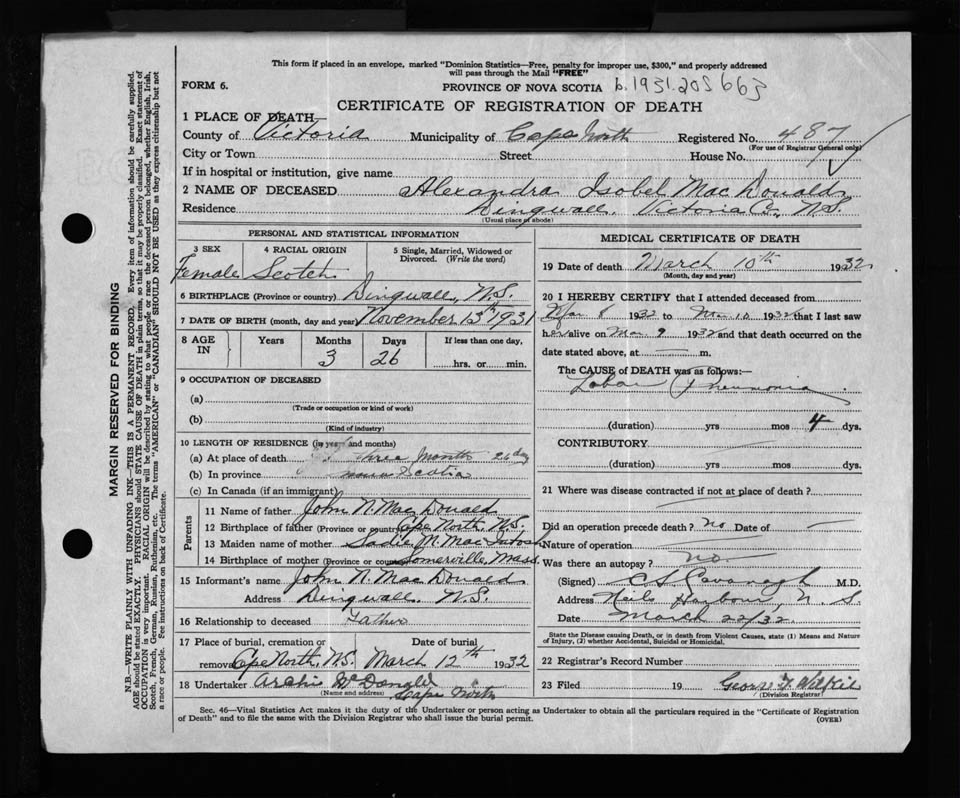 This form if placed in an envelope, marked "Dominion Statistics—Free, penalty for improper use, $300," and properly addressed
will pass through the Mail "FREE"
FORM 6.
PROVINCE OF NOVA SCOTIA b.1931.205663
CERTIFICATE OF REGISTRATION OF DEATH
1 PLACE OF DEATH—
County of Victoria Municipality of Cape North Registered No. 487
(For use of Registrar General only)
City or Town Street House No.
If in hospital or institution, give name
2 NAME OF DECEASED Alexandra Isobel MacDonald
Residence Dingwall, Victoria Co., N.S.
(Usual place of abode)
PERSONAL AND STATISTICAL INFORMATION
3 SEX 4 RACIAL ORIGIN 5 Single, Married, Widowed or Divorced. (Write the word)
Female Scotch
6 BIRTHPLACE (Province or country) Dingwall, N.S.
7 DATE OF BIRTH (month, day and year) November 13th 1931
8 AGE IN Years Months Days If less than one day,
3 26 hrs. or min.
9 OCCUPATION OF DECEASED
(a)
(Trade or occupation or kind of work)
(b)
(Kind of industry)
10 LENGTH OF RESIDENCE (in years and months)
(a) At place of death three months 26 day
(b) In province Nova Scotia
(c) In Canada (if an immigrant)
Parents
11 Name of father John N. MacDonald
12 Birthplace of father (Province or country) Cape North, N.S.
13 Maiden name of mother Sadie M. MacIntosh
14 Birthplace of mother (Province or country) Somerville, Mass.
15 Informant's name John N. MacDonald
Address Dingwall N.S.
16 Relationship to deceased Father
17 Place of burial, cremation or removal Cape North, N.S. Date of burial March 12th 1932
18 Undertaker Archi McDonald
(Name and address) Cape North
MEDICAL CERTIFICATE OF DEATH
19 Date of death March 10th 1932
(Month, day and year)
20 I HEREBY CERTIFY that I attended deceased from
Mar 8 1932 to Mar 10 1932 that I last saw
her alive on Mar 9 1932 and that death occurred on the
date stated above, at — m.
The CAUSE of DEATH was as follows:—
Lobar Pneumonia
(duration) yrs mos 4 dys.
CONTRIBUTORY
(duration) yrs mos dys.
21 Where was disease contracted if not at place of death?
Did an operation precede death? no Date of —
Nature of operation
Was there an autopsy? no
(Signed) C S Cavanagh M.D.
Address Neils Harbour, N. S.
Date March 22/32
State the Disease causing Death, or in death from Violent Causes, state (1) Means and Nature
of Injury, (2) whether Accidental, Suicidal or Homicidal.
22 Registrar's Record Number
23 Filed 19 George F. Wilkie
(Division Registrar)
Sec. 46—Vital Statistics Act makes it the duty of the Undertaker or person acting as Undertaker to obtain all the particulars required in the "Certificate of Registration
of Death" and to file the same with the Division Registrar who shall issue the burial permit. (OVER)
MARGIN RESERVED FOR BINDING
N.B.—WRITE PLAINLY WITH UNFADING INK—THIS IS A PERMANENT RECORD. Every item of information should be carefully supplied.
AGE should be stated EXACTLY. PHYSICIANS should STATE CAUSE OF DEATH in plain terms, so that it may be properly classified. Exact statement of
OCCUPATION is very important. RACIAL ORIGIN will be described by stating to what people or race the deceased person belonged, whether English, Irish,
Scotch, French, German, Russian, Ruthenian, etc. The terms "AMERICAN" or "CANADIAN" SHOULD NOT BE USED as they express citizenship but not
a race or people. See instructions on back of Certificate.